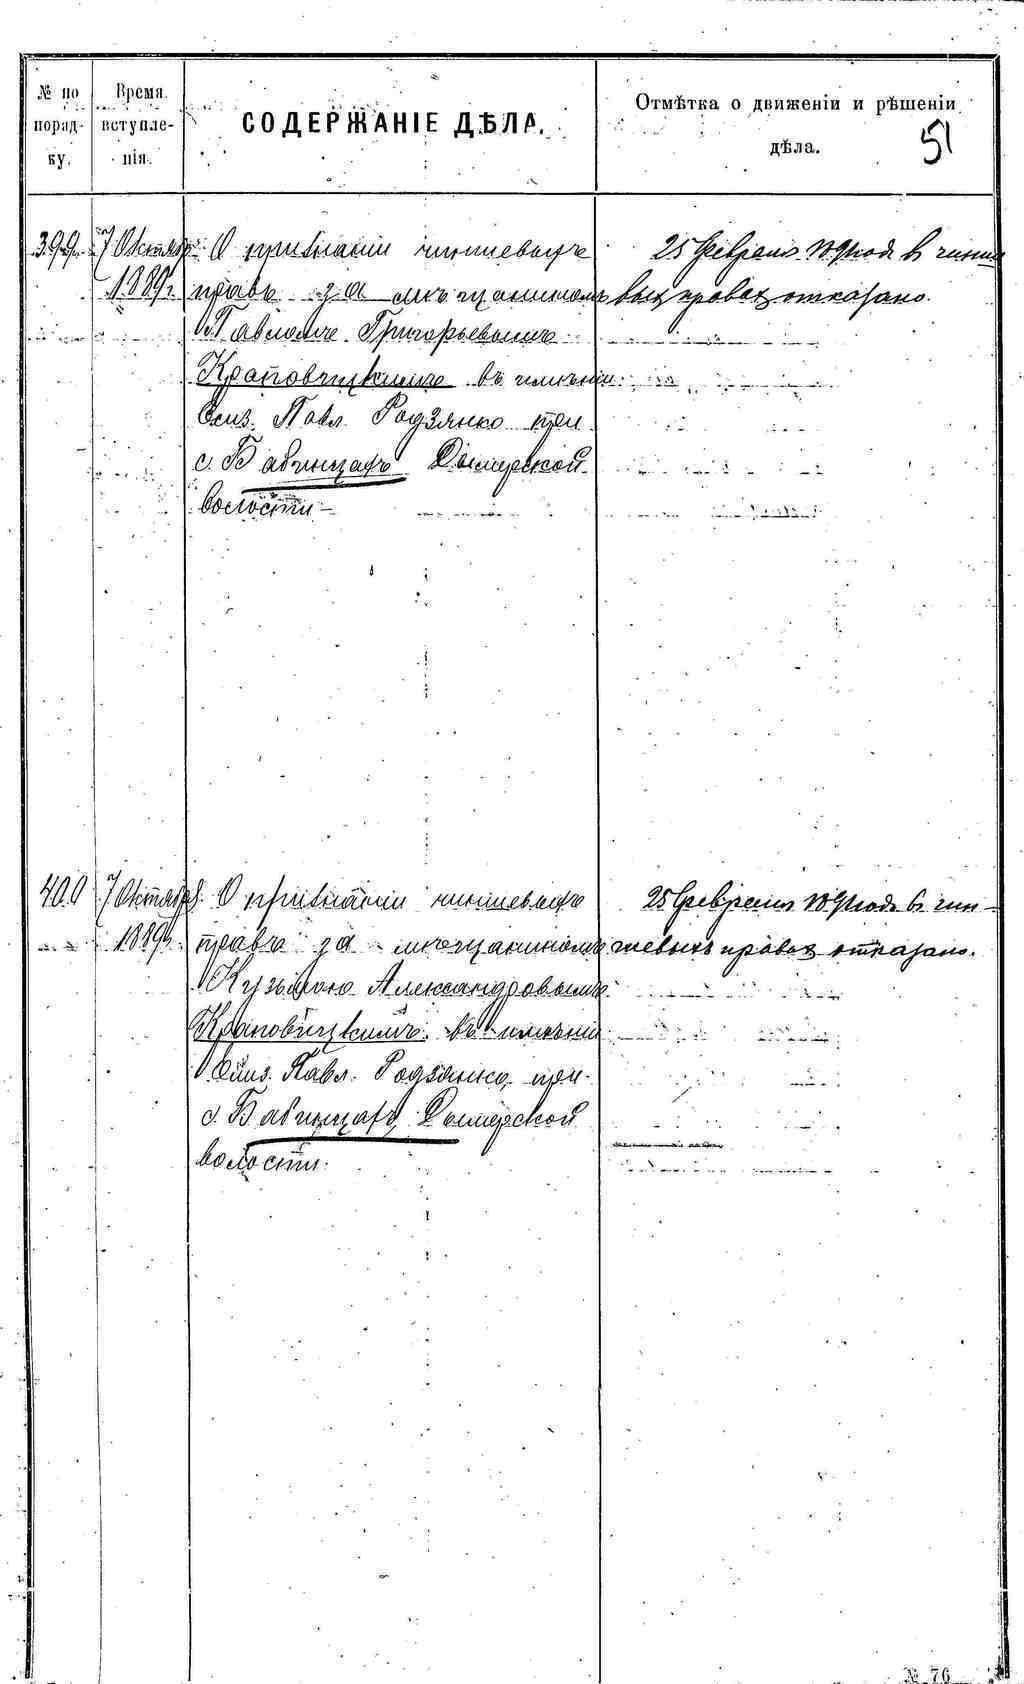 № по поряд-ку.
Время вступле-нія.
СОДЕРЖАНІЕ ДѢЛА.
Отмѣтка о движеніи и рѣшеніи дѣла.
51
399. 7 Октябр. О признаніи чиншевыхъ
1889г. правъ за мѣщаниномъ
Павломъ Григорьевымъ
Краповницкимъ въ имѣніи
Елиз. Павл. Родзянко при
с. Бабинцахъ Дымерской
волости
25 Февраля 1890 года въ чинше
выхъ правахъ отказано.
400 7 Октябр. О признаніи чиншевыхъ
1889г. правъ за мѣщаниномъ
Кузьмою Александровымъ
Краповницкимъ въ имѣніи
Елиз. Павл. Родзянко, при
с. Бабинцахъ Дымерской
волости.
25 Февраля 1890 года въ чин-
шевыхъ правахъ отказано.
№ 76